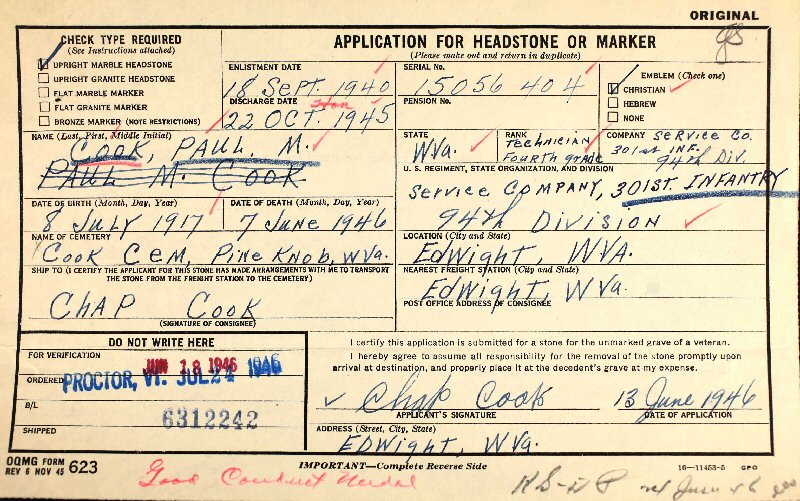 ORIGINAL
CHECK TYPE REQUIRED
(See Instructions attached)
UPRIGHT MARBLE HEADSTONE
UPRIGHT GRANITE HEADSTONE
FLAT MARBLE MARKER
FLAT GRANITE MARKER
BRONZE MARKER (NOTE RESTRICTIONS)
APPLICATION FOR HEADSTONE OR MARKER
(Please make out and return in duplicate)
ENLISTMENT DATE
18 Sept. 1940
DISCHARGE DATE Hon
22 OCT. 1945
SERIAL No.
15056 404
PENSION No.
EMBLEM (Check one)
CHRISTIAN
HEBREW
NONE
NAME (Last, First, Middle Initial)
COOK, PAUL M.
PAUL M. COOK
STATE
WVa.
RANK
Technician
Fourth grade
COMPANY Service Co.
301st INF.
94th Div.
U. S. REGIMENT, STATE ORGANIZATION, AND DIVISION
Service Company, 301st. INFANTRY
94th Division
DATE OF BIRTH (Month, Day, Year)
8 July 1917
DATE OF DEATH (Month, Day, Year)
7 June 1946
NAME OF CEMETERY
Cook Cem, Pine Knob, WVa.
LOCATION (City and State)
Edwight, WVA.
SHIP TO (I CERTIFY THE APPLICANT FOR THIS STONE HAS MADE ARRANGEMENTS WITH ME TO TRANSPORT
THE STONE FROM THE FREIGHT STATION TO THE CEMETERY)
Chap Cook
(SIGNATURE OF CONSIGNEE)
NEAREST FREIGHT STATION (City and State)
Edwight, WVa.
POST OFFICE ADDRESS OF CONSIGNEE
DO NOT WRITE HERE
FOR VERIFICATION
JUN 18 1946
ORDERED
PROCTOR, VT. JUL 24 1946
B/L
6312242
SHIPPED
I certify this application is submitted for a stone for the unmarked grave of a veteran.
I hereby agree to assume all responsibility for the removal of the stone promptly upon
arrival at destination, and properly place it at the decedent's grave at my expense.
Chap Cook 13 June 1946
APPLICANT'S SIGNATURE DATE OF APPLICATION
ADDRESS (Street, City, State)
EDwight, WVa.
OQMG FORM
REV 6 NOV 45 623
IMPORTANT—Complete Reverse Side
16—11453-5 GPO
Good Conduct Medal